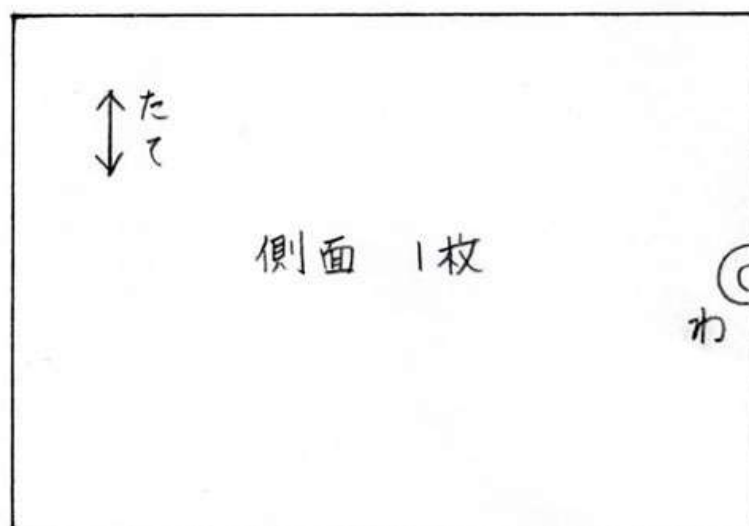 たて
側面 1枚
わ